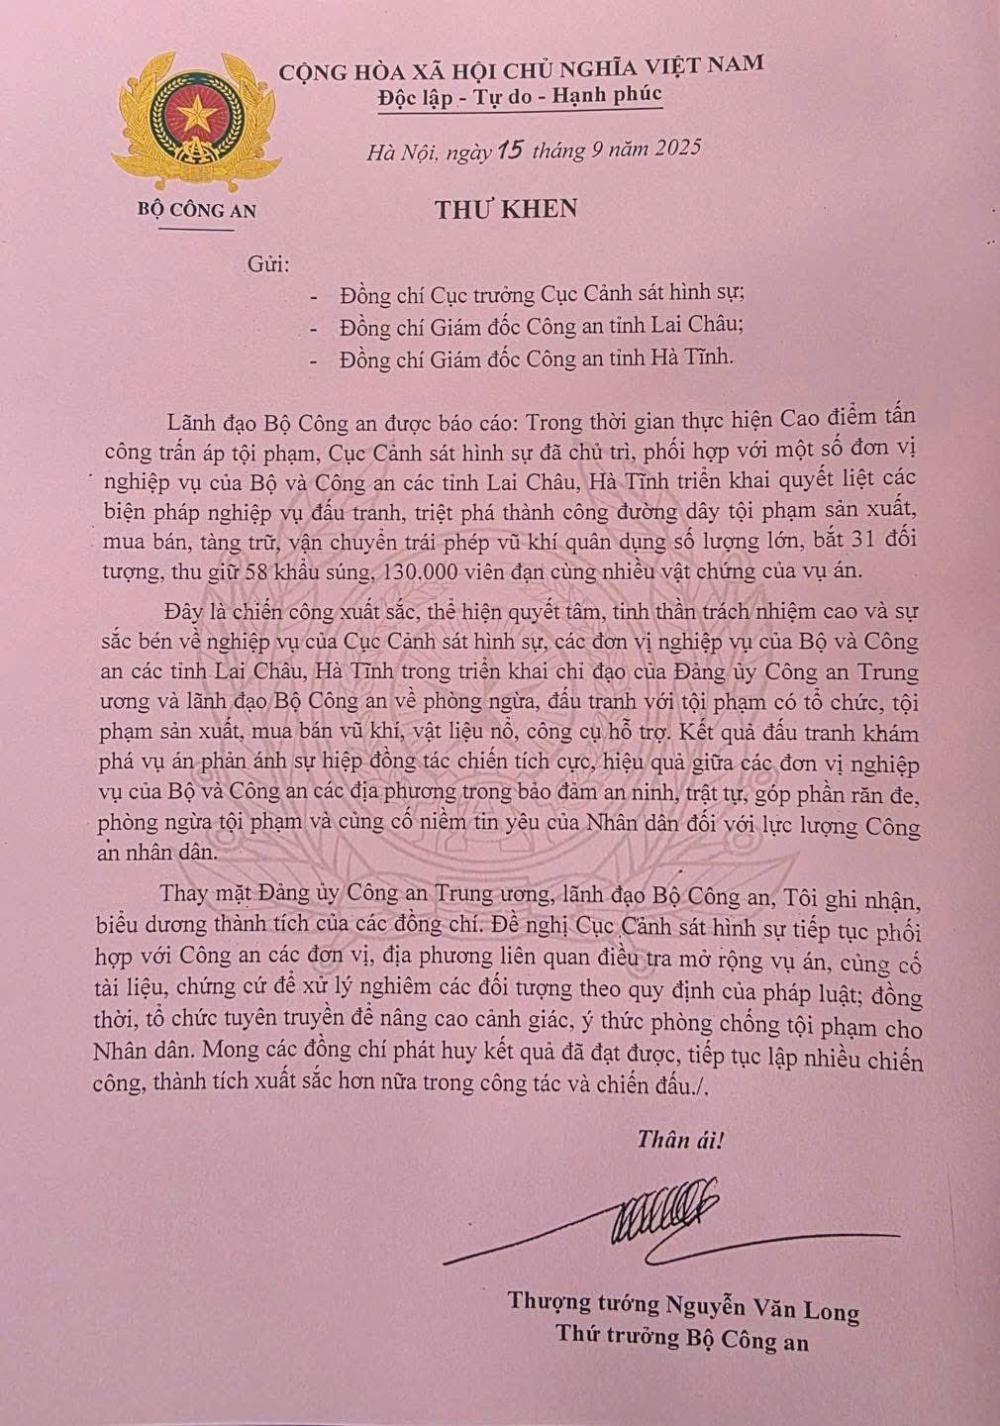 CỘNG HÒA XÃ HỘI CHỦ NGHĨA VIỆT NAM
Độc lập - Tự do - Hạnh phúc
Hà Nội, ngày 15 tháng 9 năm 2025
BỘ CÔNG AN
THƯ KHEN
Gửi:
- Đồng chí Cục trưởng Cục Cảnh sát hình sự;
- Đồng chí Giám đốc Công an tỉnh Lai Châu;
- Đồng chí Giám đốc Công an tỉnh Hà Tĩnh.
Lãnh đạo Bộ Công an được báo cáo: Trong thời gian thực hiện Cao điểm tấn
công trấn áp tội phạm, Cục Cảnh sát hình sự đã chủ trì, phối hợp với một số đơn vị
nghiệp vụ của Bộ và Công an các tỉnh Lai Châu, Hà Tĩnh triển khai quyết liệt các
biện pháp nghiệp vụ đấu tranh, triệt phá thành công đường dây tội phạm sản xuất,
mua bán, tàng trữ, vận chuyển trái phép vũ khí quân dụng số lượng lớn, bắt 31 đối
tượng, thu giữ 58 khẩu súng, 130.000 viên đạn cùng nhiều vật chứng của vụ án.
Đây là chiến công xuất sắc, thể hiện quyết tâm, tinh thần trách nhiệm cao và sự
sắc bén về nghiệp vụ của Cục Cảnh sát hình sự, các đơn vị nghiệp vụ của Bộ và Công
an các tỉnh Lai Châu, Hà Tĩnh trong triển khai chỉ đạo của Đảng ủy Công an Trung
ương và lãnh đạo Bộ Công an về phòng ngừa, đấu tranh với tội phạm có tổ chức, tội
phạm sản xuất, mua bán vũ khí, vật liệu nổ, công cụ hỗ trợ. Kết quả đấu tranh khám
phá vụ án phản ánh sự hiệp đồng tác chiến tích cực, hiệu quả giữa các đơn vị nghiệp
vụ của Bộ và Công an các địa phương trong bảo đảm an ninh, trật tự, góp phần răn đe,
phòng ngừa tội phạm và củng cố niềm tin yêu của Nhân dân đối với lực lượng Công
an nhân dân.
Thay mặt Đảng ủy Công an Trung ương, lãnh đạo Bộ Công an, Tôi ghi nhận,
biểu dương thành tích của các đồng chí. Đề nghị Cục Cảnh sát hình sự tiếp tục phối
hợp với Công an các đơn vị, địa phương liên quan điều tra mở rộng vụ án, củng cố
tài liệu, chứng cứ để xử lý nghiêm các đối tượng theo quy định của pháp luật; đồng
thời, tổ chức tuyên truyền để nâng cao cảnh giác, ý thức phòng chống tội phạm cho
Nhân dân. Mong các đồng chí phát huy kết quả đã đạt được, tiếp tục lập nhiều chiến
công, thành tích xuất sắc hơn nữa trong công tác và chiến đấu./.
Thân ái!
Thượng tướng Nguyễn Văn Long
Thứ trưởng Bộ Công an